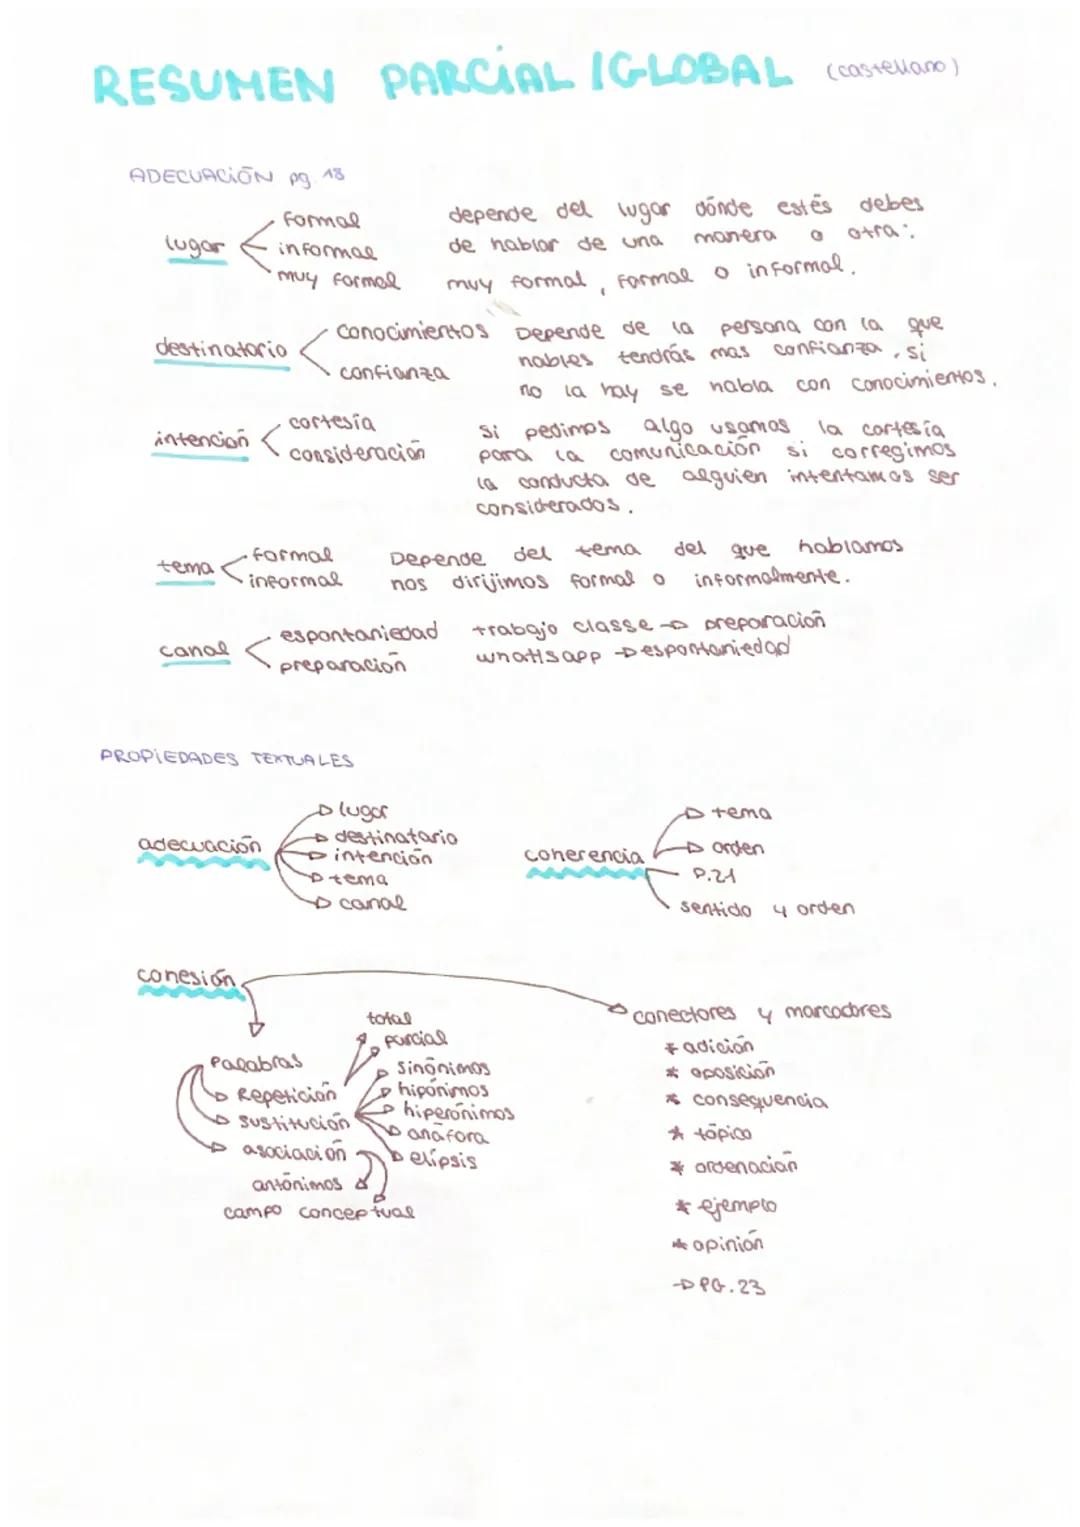 RESUMEN PARCIAL /GLOBAL (castellano)
ADECUACIÓN pg. 18
lugar
formal
informal
muy formal
depende del lugar dónde estés debes
de hablar de una manera o otra:
muy formal, formal o informal.
destinatario
conocimientos
confianza
Depende de la persona con la que
hables tendrás mas confianza, si
no la hay se habla con conocimientos.
intención
cortesía
consideración
si pedimos algo usamos la cortesía
para la comunicación si corregimos
la conducta de alguien intentamos ser
considerados.
tema
formal
informal
Depende del tema del que hablamos
nos dirijimos formal o informalmente.
canal
espontaniedad
preparación
trabajo classe → preparación
whatsapp → espontaniedad
PROPIEDADES TEXTUALES
adecuación
lugar
destinatario
intención
tema
canal
coherencia
tema
orden
P.21
sentido y orden
cohesión
Palabras
Repetición
total
parcial
sustitución
sinónimos
hipónimos
hiperónimos
anáfora
elipsis
asociación
antónimos
campo conceptual
conectores y marcadores
* adición
* oposición
* consequencia
* tópico
* ordenación
* ejemplo
* opinión
→ PG.23